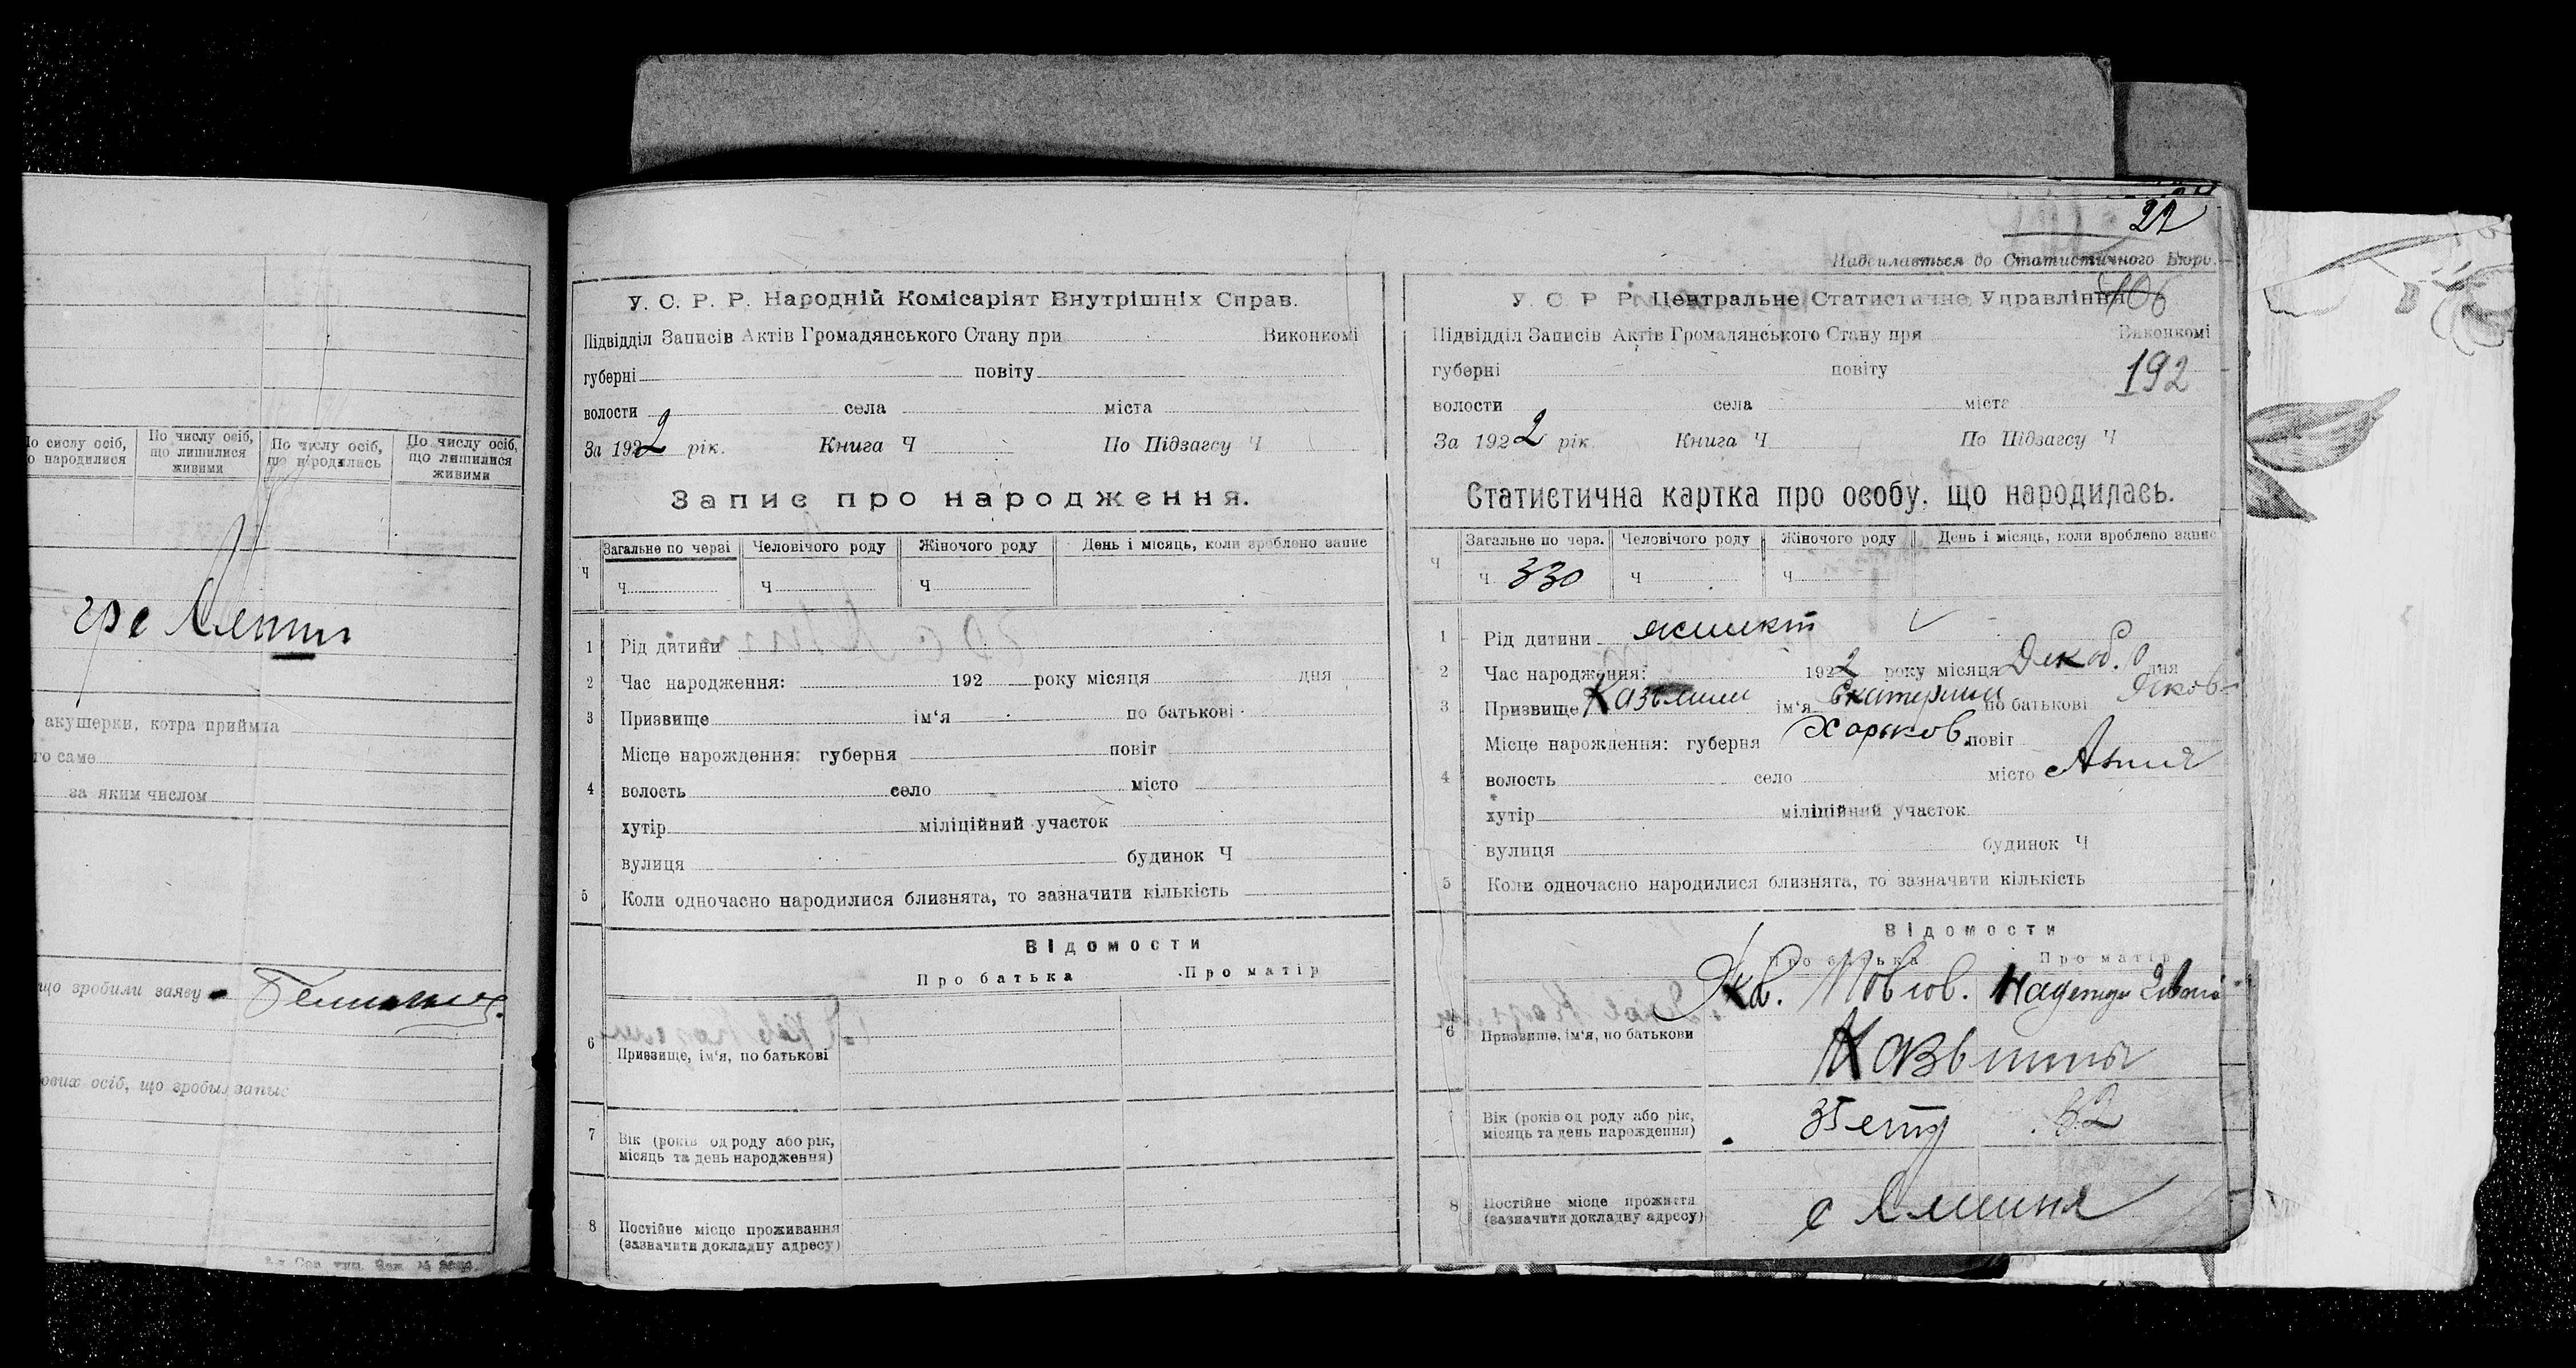 По числу осіб,
що народилися
По числу осіб,
що лишилися
живими
По числу осіб,
що народились
По числу осіб,
що лишилися
живими
акушерки, котра приймла
го саме
за яким числом
що зробили заяву
ових осіб, що зробыл запыс
У. С. Р. Р. Народній Комісаріят Внутрішніх Справ.
Підвідділ Записів Актів Громадянського Стану при Виконкомі
губерні повіту
волости села міста
За 1922 рік. Книга Ч По Підзагсу Ч
Запис про народження.
Ч
Загальне по черзі Человічого роду Жіночого роду День і місяць, коли зроблено запис
Ч Ч Ч
1 Рід дитини
2 Час народження: 192 року місяця дня
3 Призвище ім‘я по батькові
4 Місце нарождення: губерня повіт
волость село місто
хутір міліційний участок
вулиця будинок Ч
5 Коли одночасно народилися близнята, то зазначити кількість
Відомости
Про батька Про матір
6 Призвище, ім‘я, по батькові
7 Вік (років од роду або рік,
місяць та день народження)
8 Постійне місце проживання
(зазначити докладну адресу)
22
Надсилається до Статистичного Бюро.
У. С. Р. Р. Центральне Статистичне Управління
106
Підвідділ Записів Актів Громадянського Стану при Виконкомі
губерні повіту
192
волости села міста
За 1922 рік Книга Ч По Підзагсу Ч
Статистична картка про особу, що народилась.
Ч
Загальне по черз. Человічого роду Жіночого роду День і місяць, коли зроблено запис
Ч 330 Ч Ч
1 Рід дитини
2 Час народження: 1922 року місяця Декаб. дня
3 Призвище ім‘я Екатерина по батькові Яков-
4 Місце нарождення: губерня Харьков. повіт
волость село місто
хутір міліційний участок
вулиця будинок Ч
5 Коли одночасно народилися близнята, то зазначити кількість
Відомости
Про батька Про матір
Надежда
6 Призвище, ім‘я, по батькови
7 Вік (років од роду або рік,
місяць та день нарождення)
35 32
8 Постійне місце прожиття
(зазначити докладну адресу)
с